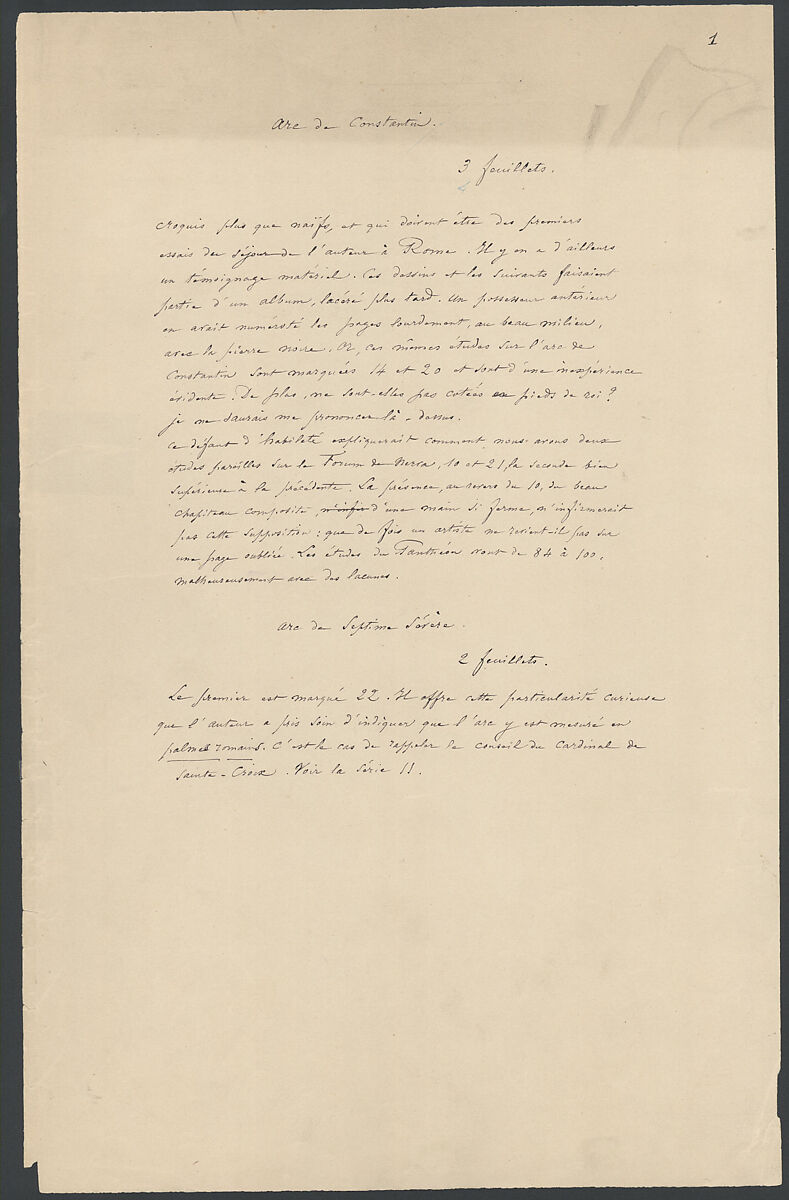 1
Arc de Constantin.
3 feuillets.
Croquis plus que naïfs, et qui doivent être des premiers
essais du séjour de l'auteur à Rome. Il y en a d'ailleurs
un témoignage matériel. Ces dessins et les suivants faisaient
partie d'un album, lacéré plus tard. Un possesseur antérieur
en avait numéroté les pages lourdement, au beau milieu,
avec la pierre noire. Or, ces mêmes études sur l'arc de
Constantin sont marquées 14 et 20 et sont d'une inexpérience
évidente. De plus, ne sont-elles pas cotées en pieds de roi?
je ne saurais me prononcer là-dessus.
Ce défaut d'habileté expliquerait comment nous avons deux
études pareilles sur le Forum de Nerva, 10 et 21, la seconde bien
supérieure à la précédente. La présence, au revers du 10, du beau
chapiteau composite, n'infir d'une main si ferme, n'infirmerait
pas cette supposition: que de fois un artiste ne revient-il pas sur
une page oubliée. Les études du Panthéon vont de 84 à 100,
malheureusement avec des lacunes.
Arc de Septime Sévère.
2 feuillets.
Le premier est marqué 22. Il offre cette particularité curieuse
que l'auteur a pris soin d'indiquer que l'arc y est mesuré en
palmes romains. C'est le cas de rappeler le conseil du Cardinal de
Sainte-Croix. Voir la série 11.